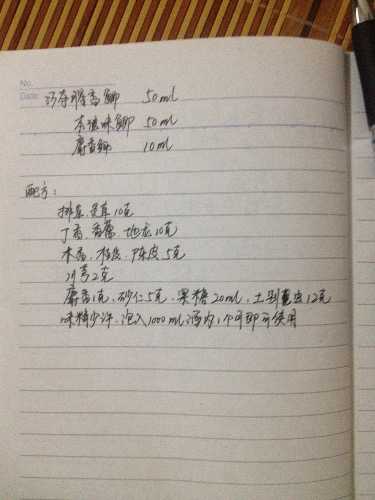 No.
Date
巧夺雅香鲫 50ml
本滋味鲫 50ml
麝香鲫 10ml
配方:
排草、灵草10克
丁香、香藤、地龙10克
木香、桂皮、陈皮5克
川芎2克
麝香1克、砂仁5克、果糖20ml、土别虫12克
味精少许、泡入1000ml酒内1个月即可使用